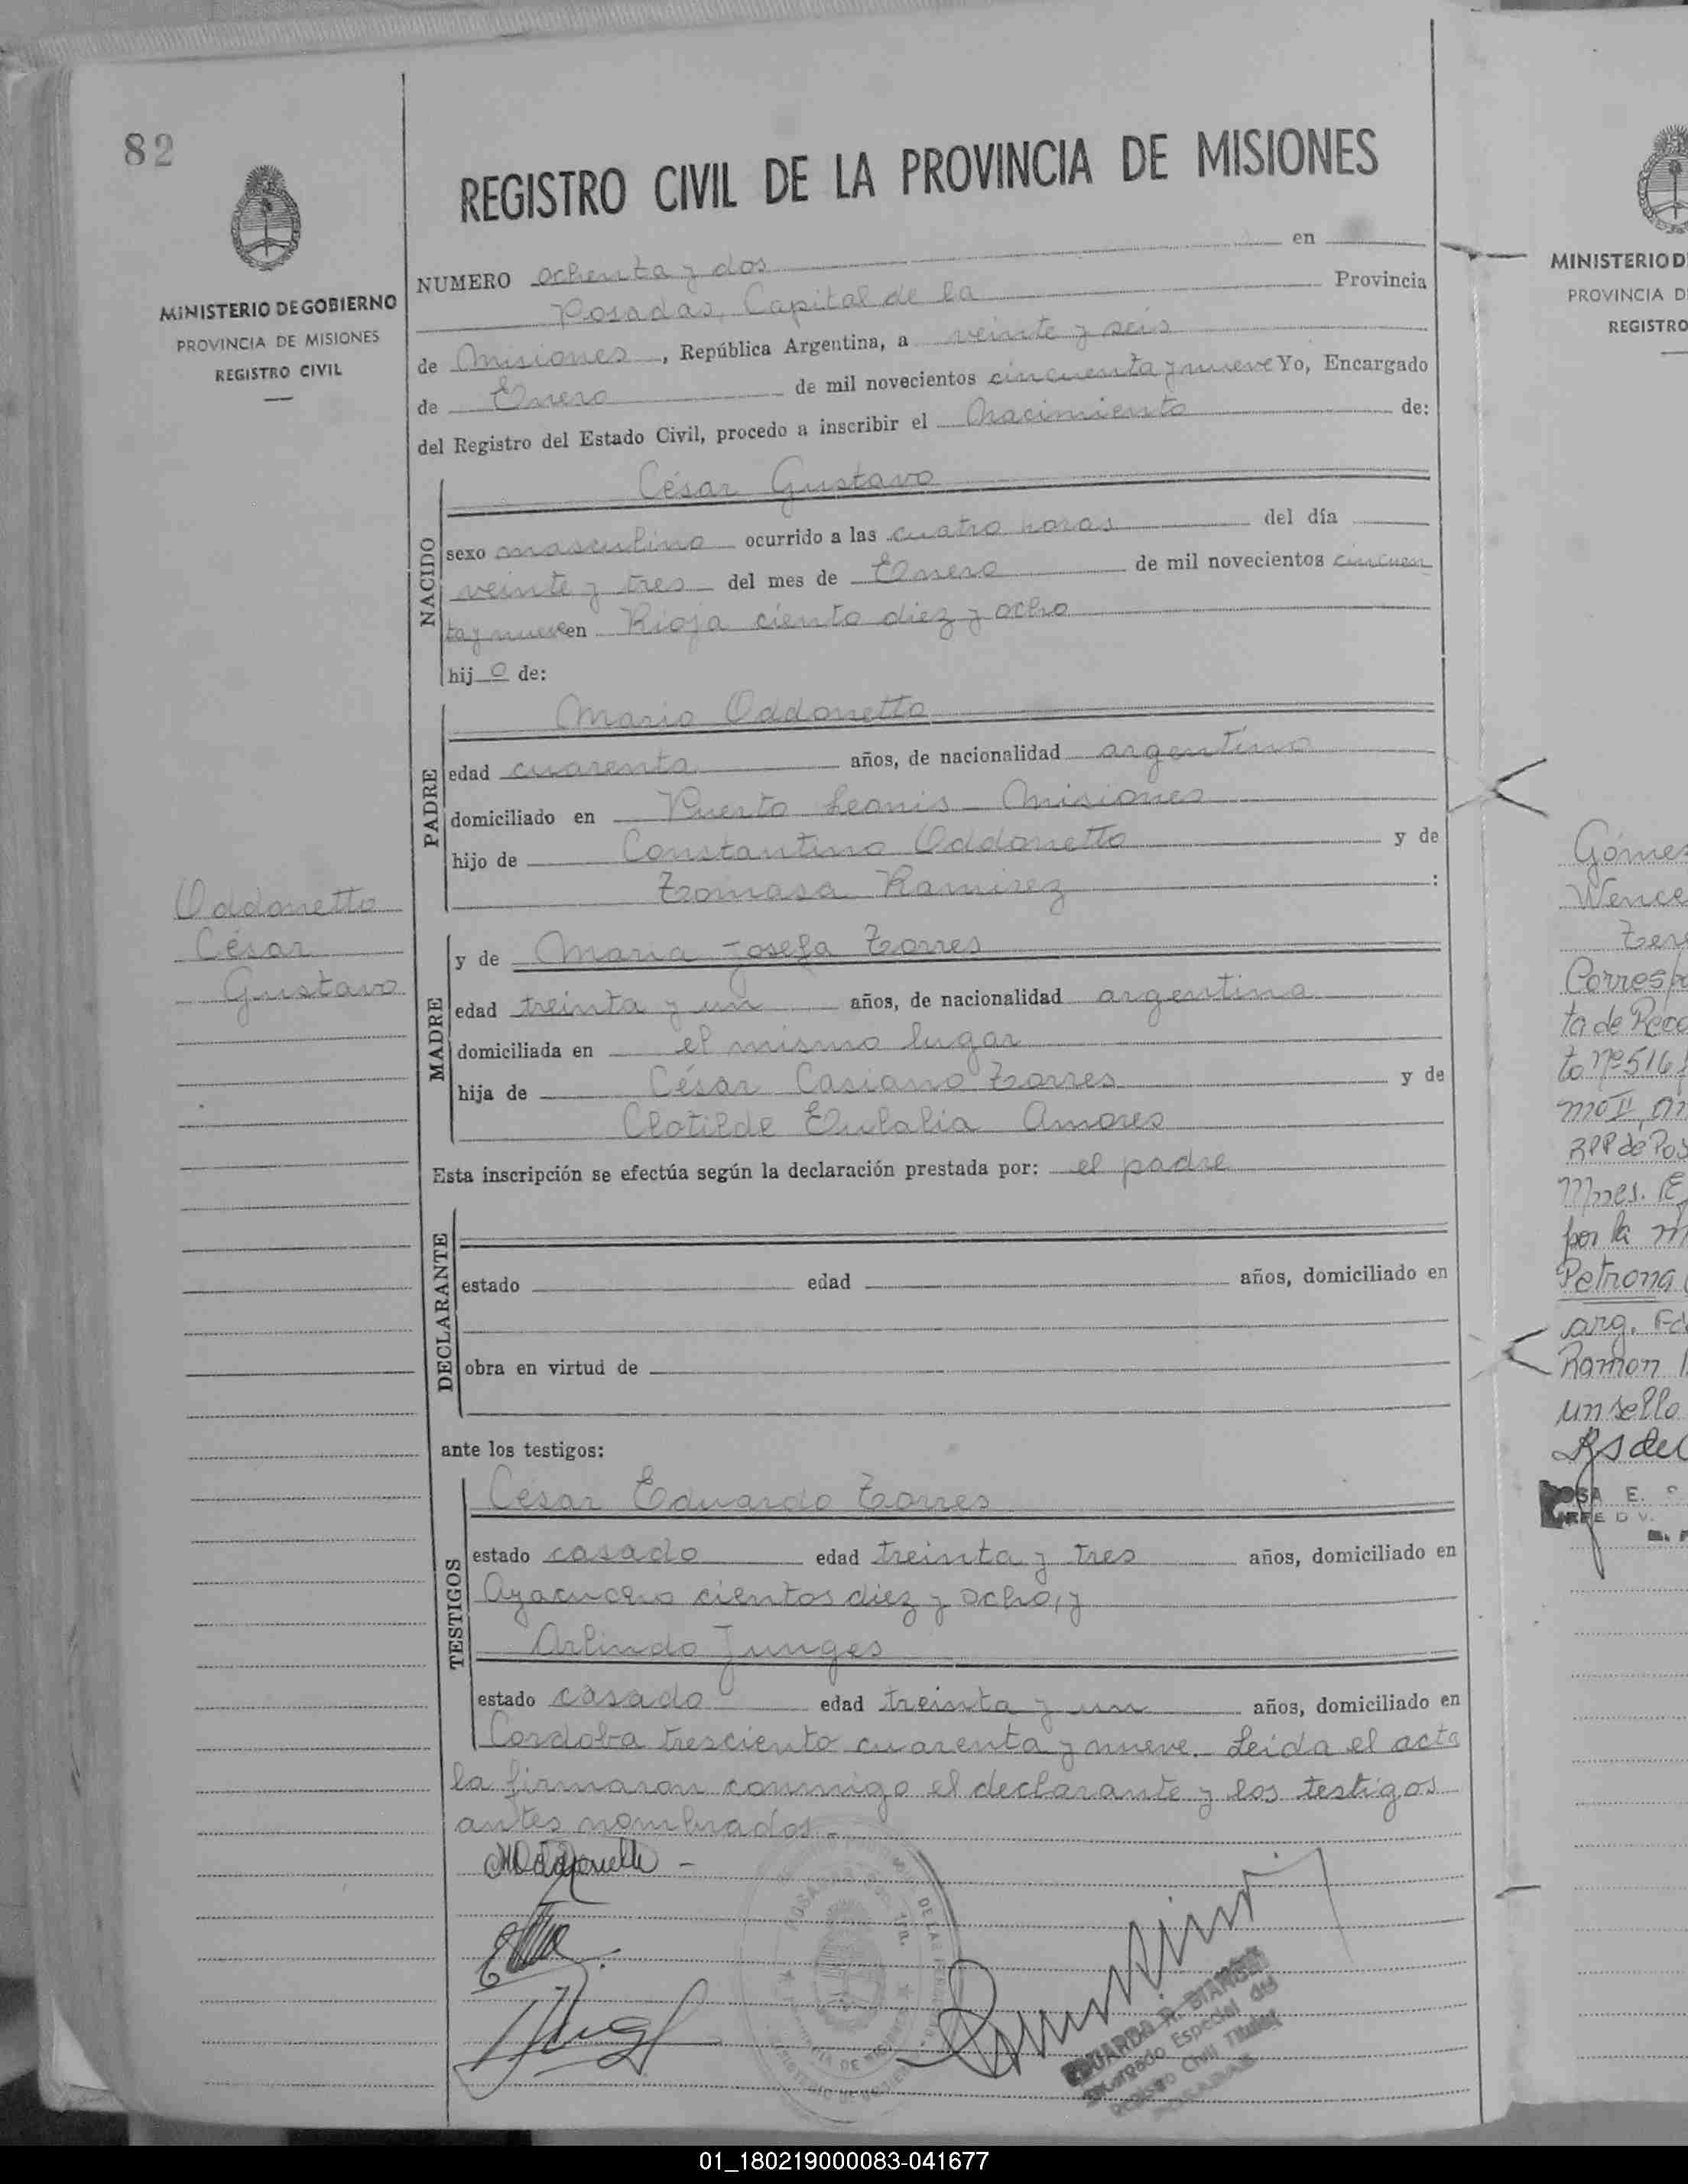 82
REGISTRO CIVIL DE LA PROVINCIA DE MISIONES
MINISTERIO DE GOBIERNO
PROVINCIA DE MISIONES
REGISTRO CIVIL
NUMERO ochenta y dos en
Posadas, Capital de la Provincia
de Misiones, República Argentina, a veinte y seis
de Enero de mil novecientos cincuenta y nueve Yo, Encargado
del Registro del Estado Civil, procedo a inscribir el Nacimiento de:
NACIDO
César Gustavo
sexo masculino ocurrido a las cuatro horas del día
veinte y tres del mes de Enero de mil novecientos cincuen
ta y nueve en Rioja ciento diez y ocho
hijo de:
PADRE
Mario Oddonetto
edad cuarenta años, de nacionalidad argentino
domiciliado en Puerto Leonis - Misiones
hijo de Constantino Oddonetto y de
Tomasa Ramirez :
Oddonetto
César
Gustavo
MADRE
y de Maria Josefa Torres
edad treinta y un años, de nacionalidad argentina
domiciliada en el mismo lugar
hija de César Casiano Torres y de
Clotilde Eulalia Amores
Esta inscripción se efectúa según la declaración prestada por: el padre
DECLARANTE
estado edad años, domiciliado en
obra en virtud de
ante los testigos:
TESTIGOS
César Eduardo Torres
estado casado edad treinta y tres años, domiciliado en
Ayacucho cientos diez y ocho, y
Arlindo Junges
estado casado edad treinta y un años, domiciliado en
Cordoba tresciento cuarenta y nueve. Leida el acta
la firmaron conmigo el declarante y los testigos
antes nombrados.-
Encargado Especial del
Registro Civil Titular
POSADAS
MINISTERIO D
PROVINCIA D
REGISTRO
Gómez
Wence
Corresp
ta de Reco
to Nº 516
mo II
RPP de Pos
Mnes.
por la
Petrona
arg.
Ramon
un sello
OSA E.
JEFE DV.
01_180219000083-041677